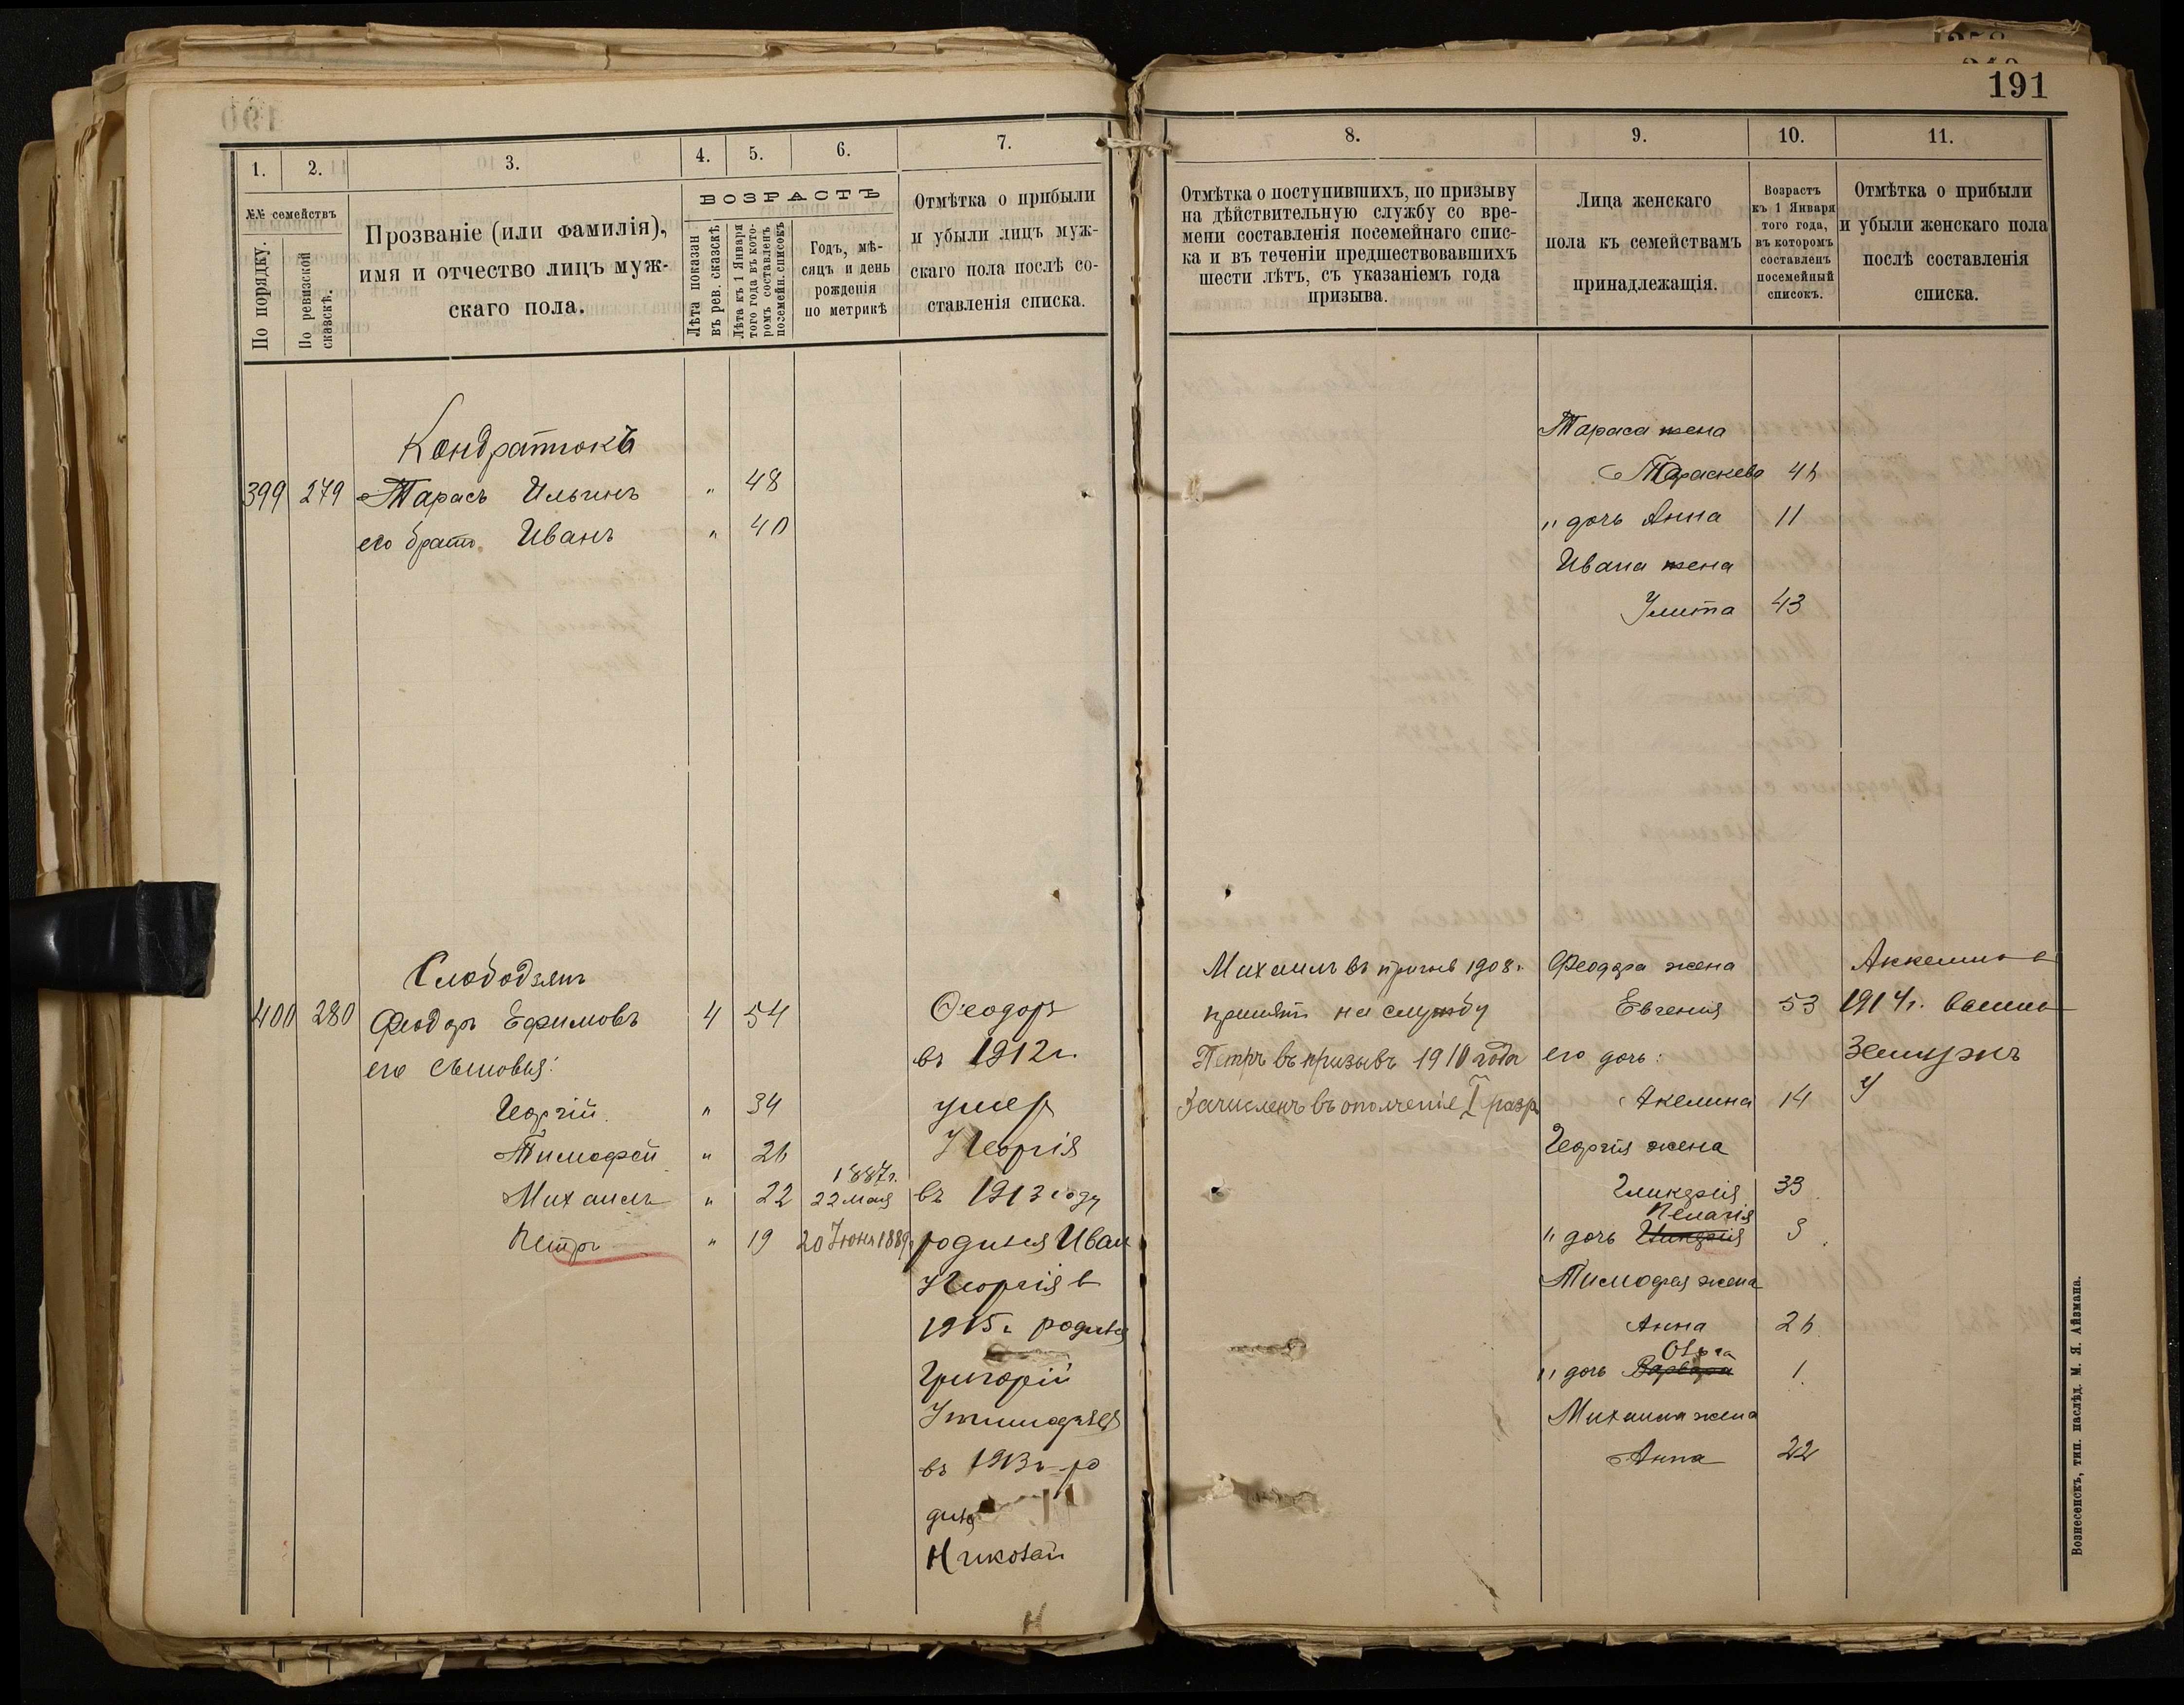 191
1.
2.
3.
4.
5.
6.
7.
№№ семействъ
По порядку.
По ревизской сказскѣ.
Прозваніе (или фамилія),
имя и отчество лицъ муж-
скаго пола.
ВОЗРАСТЪ
Лѣта показан
въ рев. сказскѣ
Лѣта къ 1 Января
того года въ кото-
ромъ составленъ
посемейн. списокъ
Годъ, мѣ-
сяцъ и день
рожденія
по метрикѣ
Отмѣтка о прибыли
и убыли лицъ муж-
скаго пола послѣ со-
ставленія списка.
Кондратюкъ
399 279 Тарасъ Ильинъ " 48
его братъ Иванъ " 40
Слободзянъ
400 280 Феодоръ Ефимовъ 4 54
его сыновья:
Георгій " 34
Тимофей " 26
Михаилъ " 22 1887г. 22 мая
Петръ " 19 20 Іюня 1889г.
Феодоръ
въ 1912г.
умер
У Георгія
въ 1913 году
родился Иван
У Георгія в
1915г. родился
Григорій
У Тимофея
въ 1913г. ро
дился
Николай
8.
9.
10.
11.
Отмѣтка о поступившихъ, по призыву
на дѣйствительную службу со вре-
мени составленія посемейнаго спис-
ка и въ теченіи предшествовавшихъ
шести лѣтъ, съ указаніемъ года
призыва.
Лица женскаго
пола къ семействамъ
принадлежащія.
Возрастъ
къ 1 Января
того года,
въ которомъ
составленъ
посемейный
списокъ.
Отмѣтка о прибыли
и убыли женскаго пола
послѣ составленія
списка.
Тараса жена
Параскева 46
" дочь Анна 11
Ивана жена
Улита 43
Михаилъ въ призывъ 1908г.
принятъ на службу
Петръ въ призывъ 1910 года
Зачисленъ въ ополченіе I разр
Феодора жена
Евгенія 53
его дочь:
Акелина 14
Георгія жена
Гликерія 33
Пелагія
" дочь 3
Тимофея жена
Анна 26
Ольга
" дочь Варвара 1
Михаила жена
Анна 22
1914г. вышла
Замужъ
Вознесенскъ, тип. наслѣд. М. Я. Айзмана.